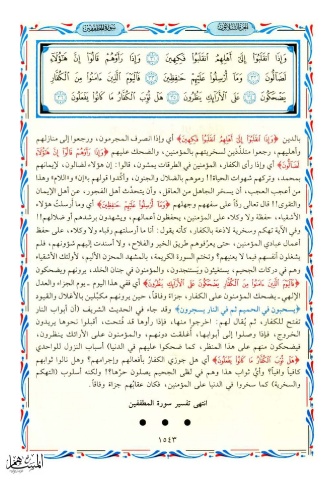 الجزء الثلاثون
سورة المطففين
وَإِذَا ٱنقَلَبُوٓا۟ إِلَىٰٓ أَهْلِهِمُ ٱنقَلَبُوا۟ فَكِهِينَ ٣١ وَإِذَا رَأَوْهُمْ قَالُوٓا۟ إِنَّ هَٰٓؤُلَآءِ
لَضَآلُّونَ ٣٢ وَمَآ أُرْسِلُوا۟ عَلَيْهِمْ حَٰفِظِينَ ٣٣ فَٱلْيَوْمَ ٱلَّذِينَ ءَامَنُوا۟ مِنَ ٱلْكُفَّارِ
يَضْحَكُونَ ٣٤ عَلَى ٱلْأَرَآئِكِ يَنظُرُونَ ٣٥ هَلْ ثُوِّبَ ٱلْكُفَّارُ مَا كَانُوا۟ يَفْعَلُونَ ٣٦
بالدين ﴿وَإِذَا ٱنقَلَبُوٓا۟ إِلَىٰٓ أَهْلِهِمُ ٱنقَلَبُوا۟ فَكِهِينَ﴾ أي وإذا انصرف المجرمون، ورجعوا إلى منازلهم
وأهليهم، رجعوا متلذذين بسخريتهم بالمؤمنين، والضحك عليهم ﴿وَإِذَا رَأَوْهُمْ قَالُوٓا۟ إِنَّ هَٰٓؤُلَآءِ
لَضَآلُّونَ﴾ أي وإذا رأى الكفار، المؤمنين في الطرقات يمشون، قالوا: إن هؤلاء لضالون، لإيمانهم
بمحمد، وتركهم شهوات الحياة!! رموهم بالضلال والجنون، وأكدوا قولهم بـ«إن» و«اللام» وهذا
من أعجب العجب، أن يسخر الجاهل من العاقل، وأن يتحدث أهل الفجور، عن أهل الإيمان
والتقوى!! قال تعالى رداً على سفههم وجهلهم ﴿وَمَآ أُرْسِلُوا۟ عَلَيْهِمْ حَٰفِظِينَ﴾ أي وما أرسلنا هؤلاء
الأشقياء، حفظة ولا وكلاء على المؤمنين، يحفظون أعمالهم، ويشهدون برشدهم أو ضلالهم!!
وفي الآية تهكم وسخرية لاذعة بالكفار، كأنه يقول: أنا ما أرسلتهم رقباء ولا وكلاء، على حفظ
أعمال عبادي المؤمنين، حتى يعرفوهم طريق الخير والفلاح، ولا أسندت إليهم شؤونهم، فلم
يشغلون أنفسهم فيما لا يعنيهم؟ وتختم السورة الكريمة، بالمشهد المحزن الأليم، لأولئك الأشقياء
وهم في دركات الجحيم، يستغيثون ويستنجدون، والمؤمنون في جنان الخلد، يرونهم ويضحكون
﴿فَٱلْيَوْمَ ٱلَّذِينَ ءَامَنُوا۟ مِنَ ٱلْكُفَّارِ يَضْحَكُونَ عَلَى ٱلْأَرَآئِكِ يَنظُرُونَ﴾ أي ففي هذا اليوم - يوم الجزاء والعدل
الإلهي - يضحك المؤمنون على الكفار، جزاءً وفاقاً، حين يرونهم مكبلين بالأغلال والقيود
﴿يسحبون في الحميم ثم في النار يسجرون﴾ وقد جاء في الحديث الشريف (أن أبواب النار
تفتح للكفار، ثم يقال لهم: اخرجوا منها، فإذا رأوها قد فُتحت، أقبلوا نحوها يريدون
الخروج، فإذا وصلوا إلى أبوابها، أغلقت دونهم، والمؤمنون على الأرائك ينظرون،
فيضحكون منهم على هذا المنظر، كما ضحكوا عليهم في الدنيا) أسباب النزول للواحدي
﴿هَلْ ثُوِّبَ ٱلْكُفَّارُ مَا كَانُوا۟ يَفْعَلُونَ﴾ أي هل جوزي الكفار بأفعالهم وإجرامهم؟ وهل نالوا ثوابهم
كاملاً وافياً؟ وأي ثواب هذا وهم في لظى الجحيم يصلون حرها؟! ولكنه أسلوب (التهكم
والسخرية) كما سخروا في الدنيا على المؤمنين، فكان عقابهم جزاءً وفاقاً.
انتهى تفسير سورة المطففين
١٥٤٣